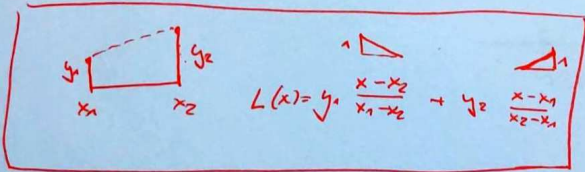 1 1
y₁ y₂
x₁ x₂
L(x) = y₁ (x - x₂)/(x₁ - x₂) + y₂ (x - x₁)/(x₂ - x₁)